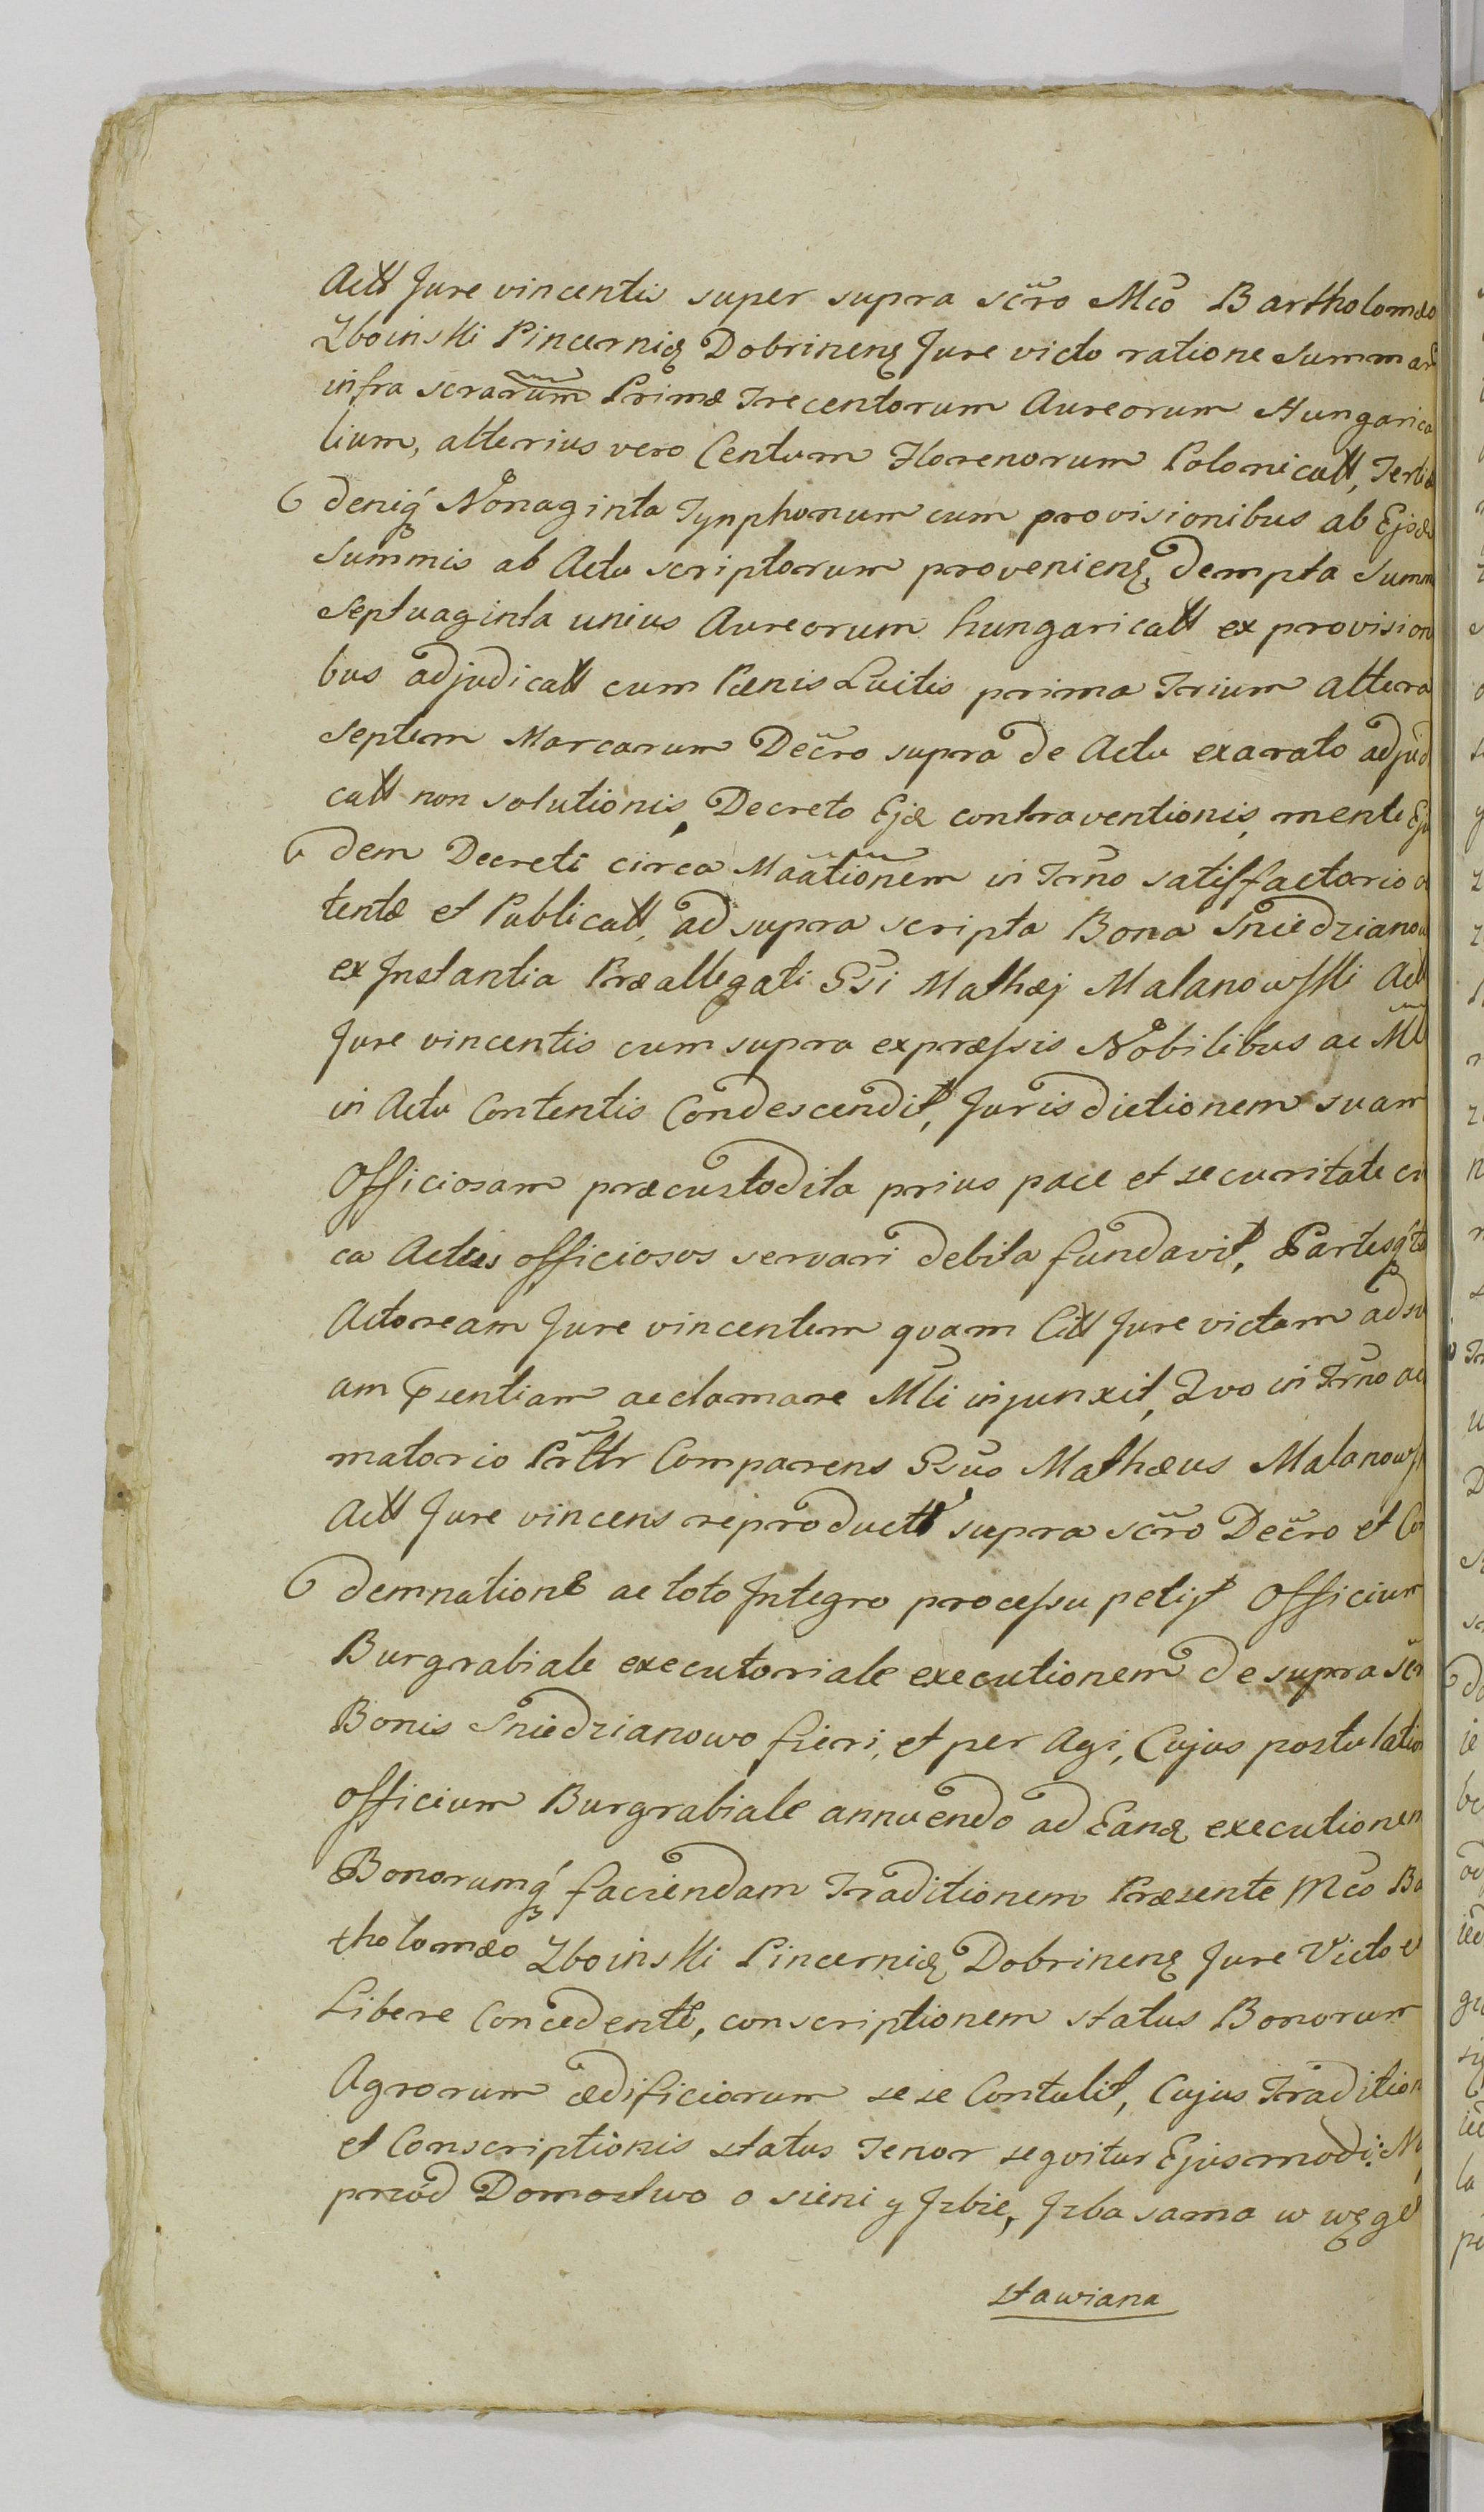 Actt Jure vincentis super supra scro Mco Bartholomæo
Zboinski Pincernię Dobrinenę Jure victo ratione Summar
infra scrarum Primæ Trecentorum Aureorum Hungarica
lium, alterius vero Centum Florenorum Polonicatt, Tertiæ
deniq Nonaginta Tynphonum cum provisionibus ab Ejsde
Summis ab Actu scriptorum provenienę, dempta Summ
Septuaginta unius Aureorum hungaricatt ex provision
bus adjudicatt cum Pænis Luitis prima Trium altera
Septem Marcarum Decro supra de Actu exarato adjud
catt non solutionis, Decreto Ejd contraventionis, mente Eju
dem Decreti circa Maationem in Trno satisfactorio o
tentæ et Publicatt, ad supra scripta Bona Sniedzianow
ex Instantia Præallegati Gsi Mathæj Malanowski Act
Jure vincentis cum supra expræssis Nobilibus ac Ml
in Actu Contentis Condescendit, Jurisdictionem suam
Officiosam præcustodita prius pace et securitate cir
ca Actus officiosos servari debita fundavit, Partesq ta
Actoream Jure vincentem quam Citt Jure victam ad su
am præsentiam acclamare Mli injunxit, Quo in Trno ac
matorio Prltr Comparens Gsus Mathæus Malanows
Actt Jure vincens reproductt supra scro Decro et Con
demnatione ac toto Integro processu petijt Officium
Burgrabiale executoriale executionem de supra scr
Bonis Sniedzianowo fieri, et per Agi, Cujus postulation
officium Burgrabiale annuendo ad Eandę executionem
Bonorumq faciendam Traditionem Præsente Mco Ba
tholomæo Zboinski Pincernię Dobrinenę Jure Victo et
Libere Concedente, conscriptionem status Bonorum
Agrorum ædificiorum sese Contulit, Cujus Tradition
et Conscriptionis status Tenor seqvitur Ejusmodi: N
przód Domostwo o sieni y Izbie, Izba sama w węgeł
stawiana